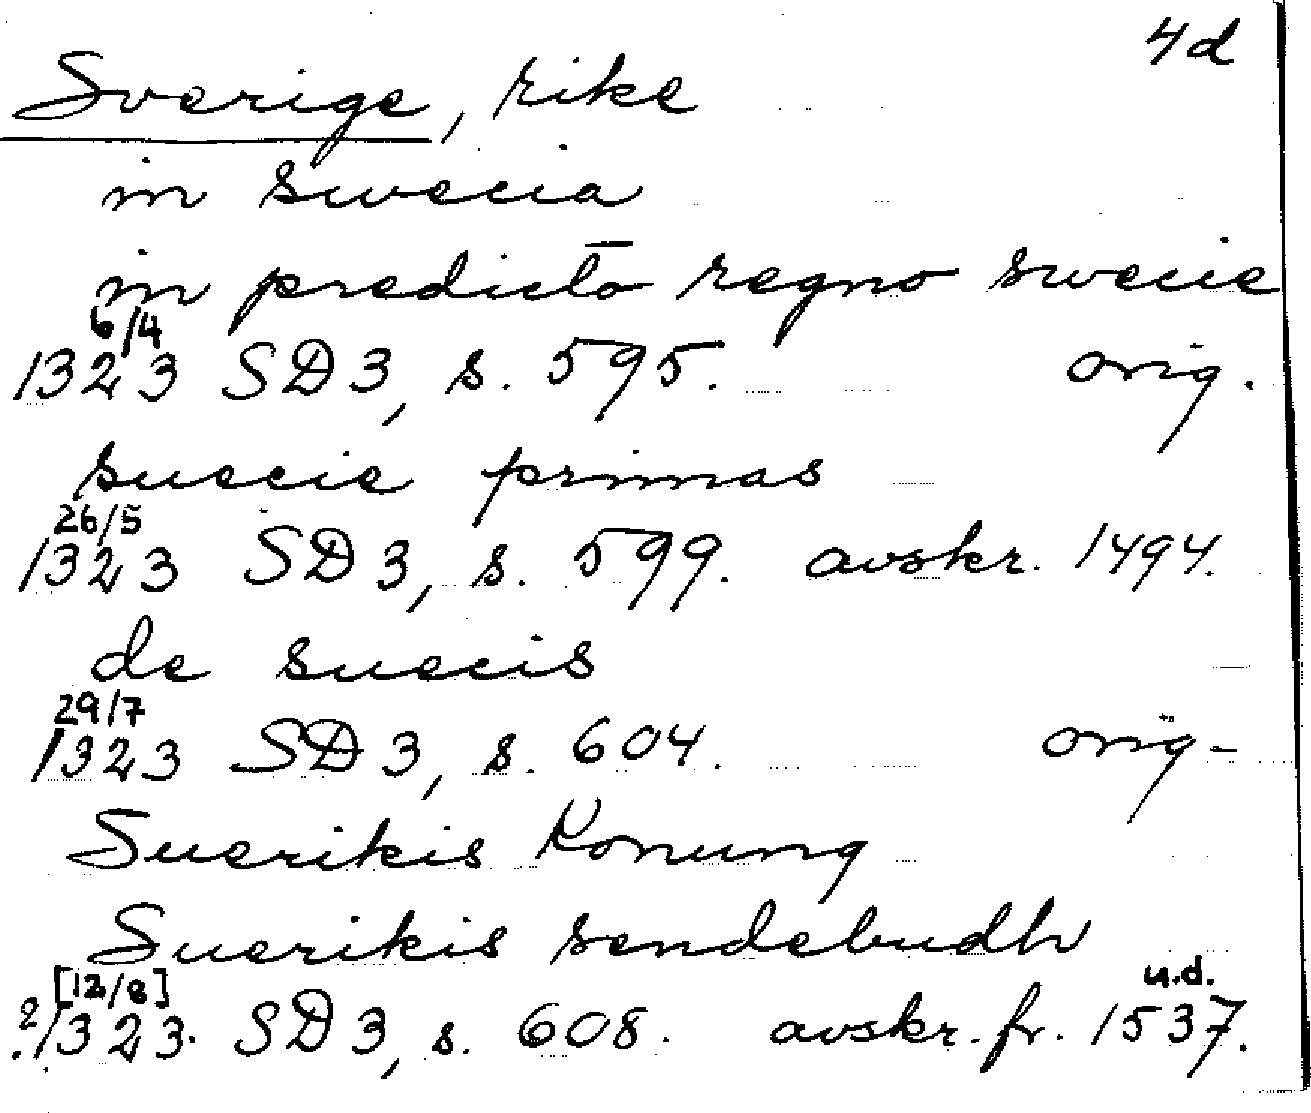 4d
Sverige, rike
in swecia
in predicto regno swecie
6/4
1323 SD 3, s. 595. orig.
suecie primas
26/5
1323 SD 3, s. 599. avskr. 1494.
de suecis
29/7
1323 SD 3, s. 604. orig.
Suerikis Konung
Suerikis sendebudh
[12/8] u.d.
?1323. SD 3, s. 608. avskr. fr. 1537.